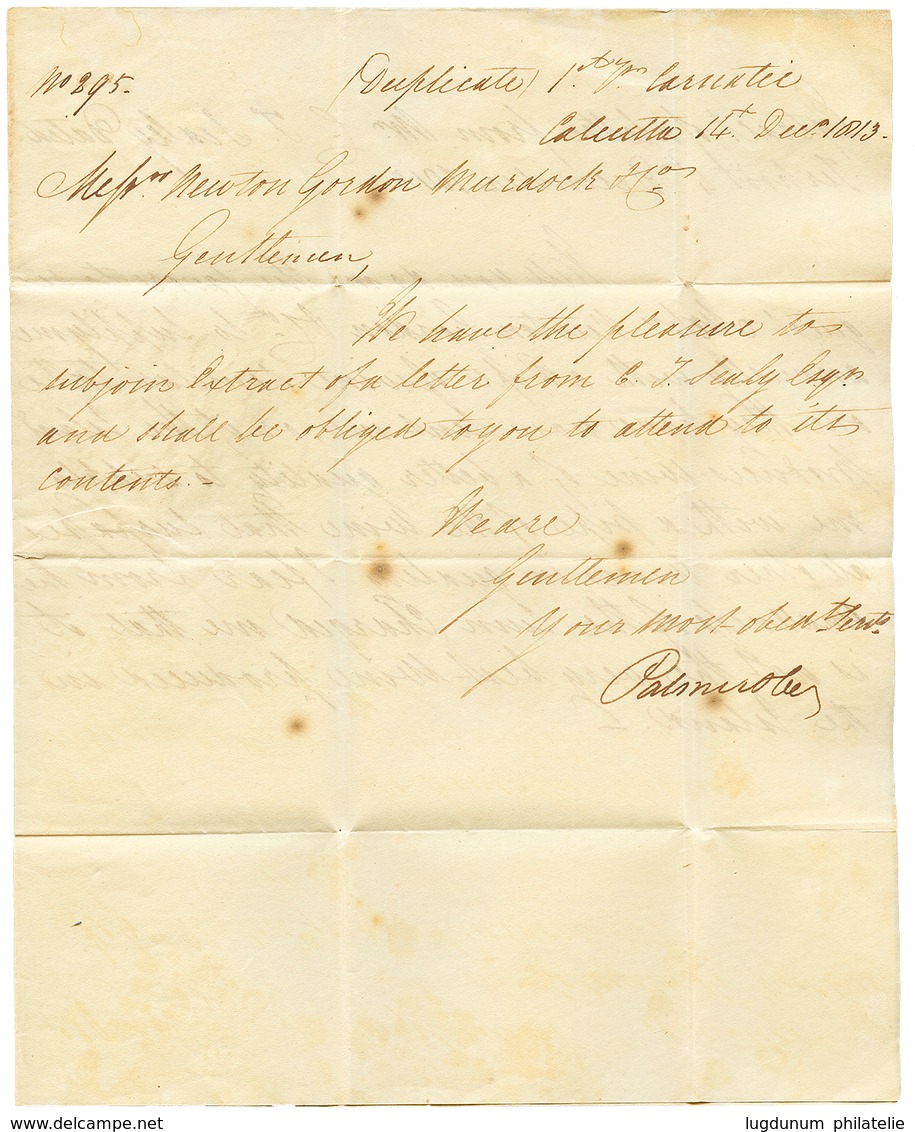 No 295.
(Duplicate) 1st pr Carnatic
Calcutta 14th Decr 1813.
Messrs Newton Gordon Murdock & Co
Gentlemen,
We have the pleasure to
subjoin Extract of a letter from C. T. Sealy Esqr
and shall be obliged to you to attend to its
contents. -
We are
Gentlemen
Your most obedt Servts
Palmer & Co
lugdunum philatelie